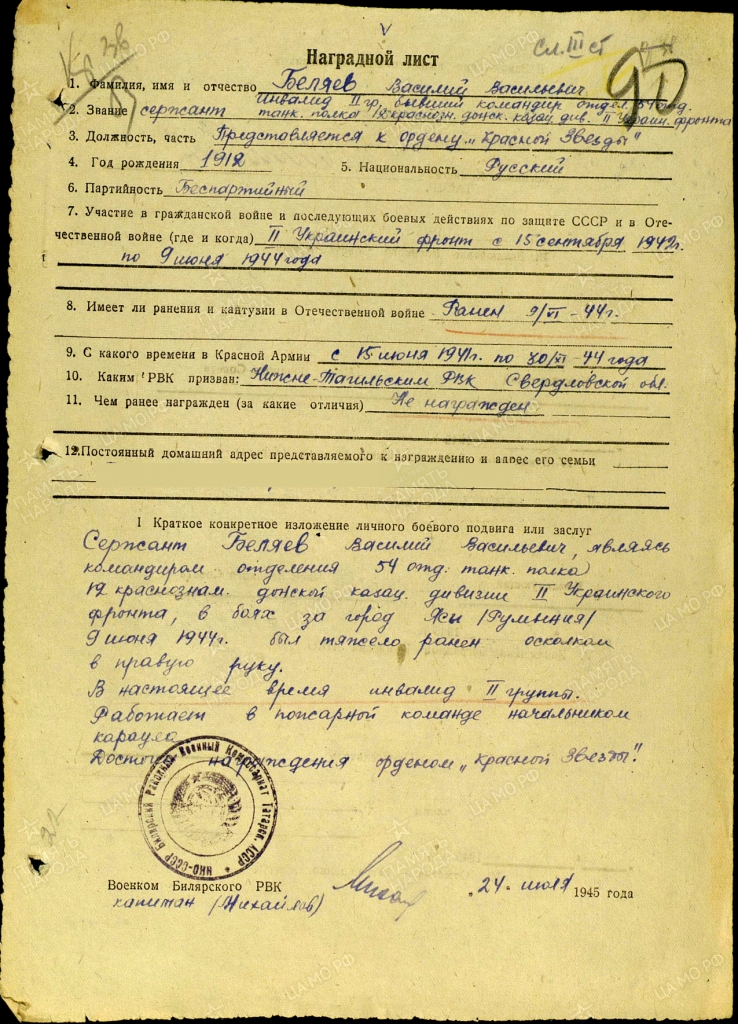 V
Сл. III ст
Наградной лист
1. Фамилия, имя и отчество Беляев Василий Васильевич
инвалид II гр, бывший командир отдел. 54 отд.
2. Звание сержант танк. полка 12 краснозн. донск. казач. див. II Украин. фронта
3. Должность, часть Представляется к ордену „Красной Звезды"
4. Год рождения 1912 5. Национальность Русский
6. Партийность Беспартийный
7. Участие в гражданской войне и последующих боевых действиях по защите СССР и в Оте-
чественной войне (где и когда) II Украинский фронт с 15 сентября 1942г.
по 9 июня 1944 года
8. Имеет ли ранения и кантузии в Отечественной войне Ранен 9/VI - 44г.
9. С какого времени в Красной Армии с 15 июня 1941г. по 30/XI - 44 года
10. Каким РВК призван: Нижне-Тагильским РВК Свердловской обл.
11. Чем ранее награжден (за какие отличия) Не награжден
12. Постоянный домашний адрес представляемого к награждению и адрес его семьи
I Краткое конкретное изложение личного боевого подвига или заслуг
Сержант Беляев Василий Васильевич, являясь
командиром отделения 54 отд. танк. полка
12 краснознам. донской казач. дивизии II Украинского
фронта, в боях за город Ясы /Румыния/
9 июня 1944г. был тяжело ранен осколком
в правую руку.
В настоящее время инвалид II группы.
Работает в пожарной команде начальником
караула
Достоин награждения орденом „Красной Звезды".
НКО-СССР Билярский Районный Военный Комиссариат Татарск. АССР
Военком Билярского РВК
капитан (Михайлов)
„24" июля 1945 года